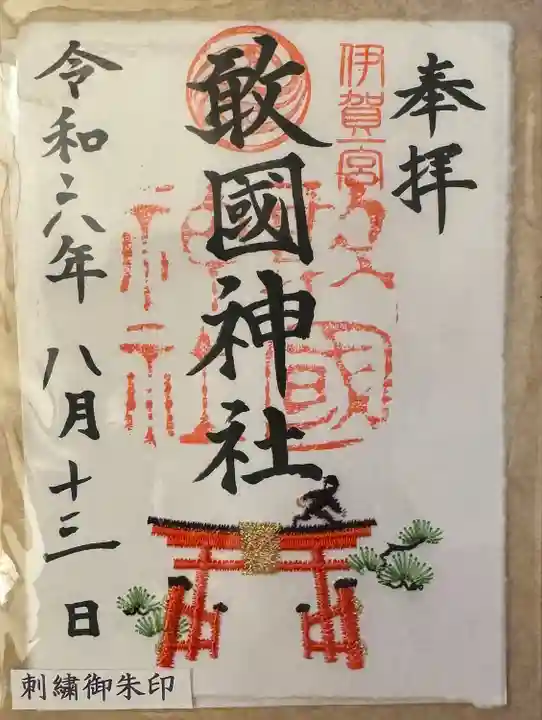 奉拝
伊賀一宮
敢國神社
敢國
神社
令和六年 八月十三日
刺繍御朱印